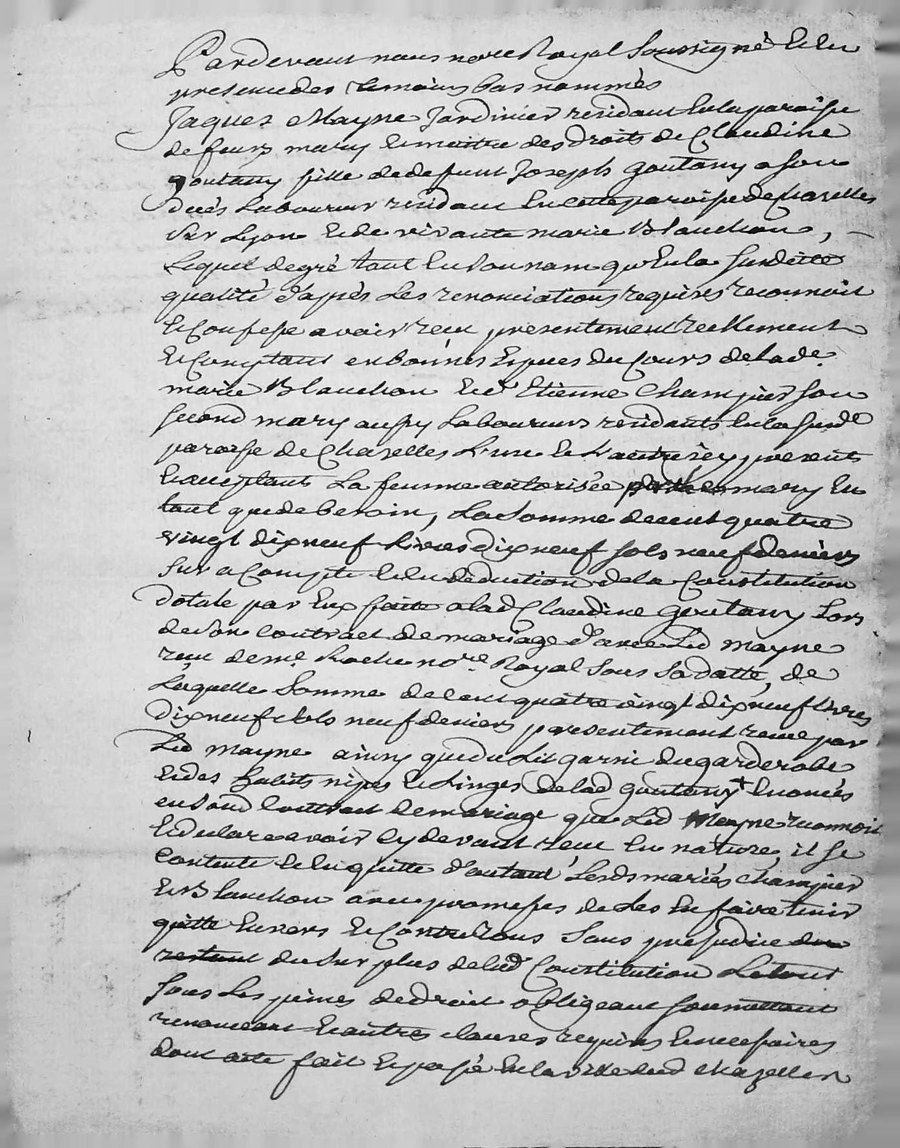 Pardevant nous nore Royal soussigné et en
presence des temoins bas nommés
Jaques Mayne Jardinier residant en la paroisse
de feurs mary et maitre des droits de Claudine
goutany fille de defunt Joseph goutany a son
deces Laboureur residant en cette paroisse de Chazelles
sur Lyon et de vivante marie Blanchon,
Lequel de gré tant en son nom qu'en la susditte
qualité d'après Les renonciations requises reconnoit
et Confesse avoir recu presentement reellement
et Comptant en bonnes Especes du Cours de lade
marie Blanchon et d' Etienne Champier son
second mary aussy Laboureurs residants en la susde
paroisse de Chazelles L'une et L'autre icy presents
et acceptant La femme autorisée mary en
tant que de besoin, La somme de cent quatre
vingt dix neuf Livres dix neuf sols neuf deniers
sur a Compte et en deduction de la Constitution
dotale par Eux faitte a lad Claudine goutany Lors
de son contract de mariage d'avec Led mayne
recu de me Roche nore Royal sous sa datte, de
Laquelle somme de cent quatre vingt dix neuf livres
dix neuf sols neuf deniers presentement recue par
Led mayne ainsy que du Lit garni du garderobe
et des habits nipes et Linges de lad goutany + Enoncés
en sond Contract de mariage que Led Mayne reconnoit
et declare avoir cy devant recu en nature, il se
contente et en quitte d'autant Lesds mariés Champier
et Blanchon avec promesses de Les En faire tenir
quitte Envers et Contre tous sans prejudice du
restant du surplus de lad Constitution Le tout
sous Les peines de droit obligeant soumettant
renonceant et autres clauses requises et necessaires
dont acte fait et passé en la ville dud Chazelles